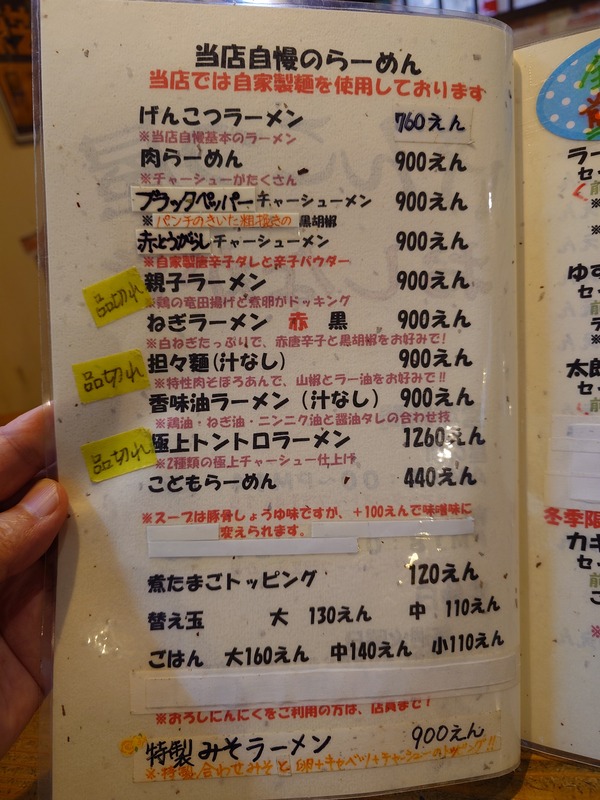 当店自慢のらーめん
当店では自家製麺を使用しております
げんこつラーメン 760えん
※当店自慢基本のラーメン
肉らーめん 900えん
※チャーシューがたくさん
ブラックペッパーチャーシューメン 900えん
※パンチのきいた粗挽きの黒胡椒
赤とうがらしチャーシューメン 900えん
※自家製唐辛子ダレと辛子パウダー
品切れ 親子ラーメン 900えん
※鶏の竜田揚げと煮卵がドッキング
ねぎラーメン 赤 黒 900えん
※白ねぎたっぷりで、赤唐辛子と黒胡椒をお好みで!
品切れ 担々麺(汁なし) 900えん
※特性肉とぼろあんで、山椒とラー油をお好みで!!
香味油ラーメン(汁なし) 900えん
※鶏油・ねぎ油・ニンニク油と醤油ダレの合わせ技
品切れ 極上トントロラーメン 1260えん
※2種類の極上チャーシュー仕上げ
こどもらーめん 440えん
※スープは豚骨しょうゆ味ですが、+100えんで味噌味に
変えられます。
煮たまごトッピング 120えん
替え玉 大 130えん 中 110えん
ごはん 大160えん 中140えん 小110えん
※おろしにんにくをご利用の方は、店員まで!
特製みそラーメン 900えん
※特製合わせみそと卵+キャベツ+チャーシューのトッピング!!
ラー
セッ
ゆず
セッ
太郎
セッ
冬季限
カキ
セッ